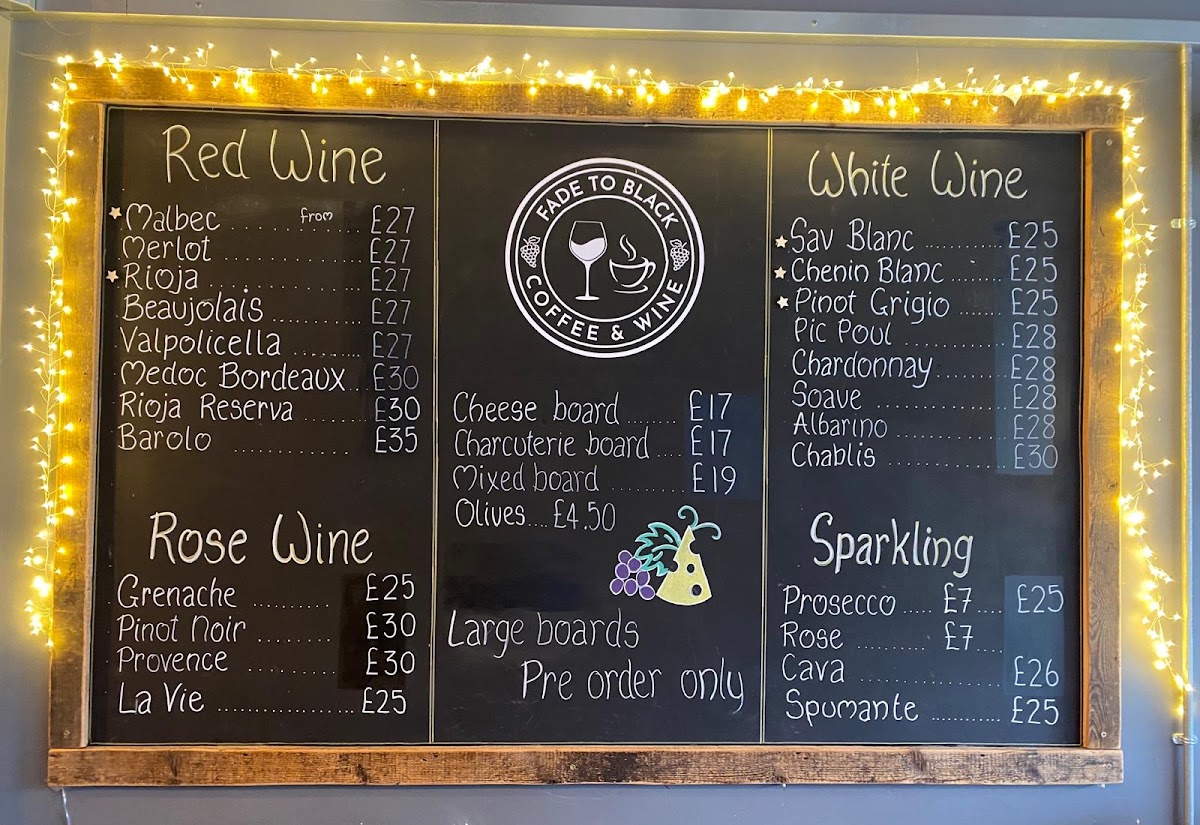 Red Wine
Malbec ........ from £27
Merlot .............. £27
Rioja ............... £27
Beaujolais ........... £27
Valpolicella ......... £27
Medoc Bordeaux .. £30
Rioja Reserva ....... £30
Barolo ............ £35
Rose Wine
Grenache ......... £25
Pinot Noir ........ £30
Provence ......... £30
La Vie ................. £25
FADE TO BLACK
COFFEE & WINE
Cheese board ....... £17
Charcuterie board .... £17
Mixed board ......... £19
Olives.... £4.50
Large boards
Pre order only
White Wine
Sav Blanc .......... £25
Chenin Blanc ....... £25
Pinot Grigio ...... £25
Pic Poul ............ £28
Chardonnay ........ £28
Soave .............. £28
Albarino ........... £28
Chablis ............. £30
Sparkling
Prosecco ..... £7 .... £25
Rose ......... £7 ...
Cava ................ £26
Spumante ........... £25